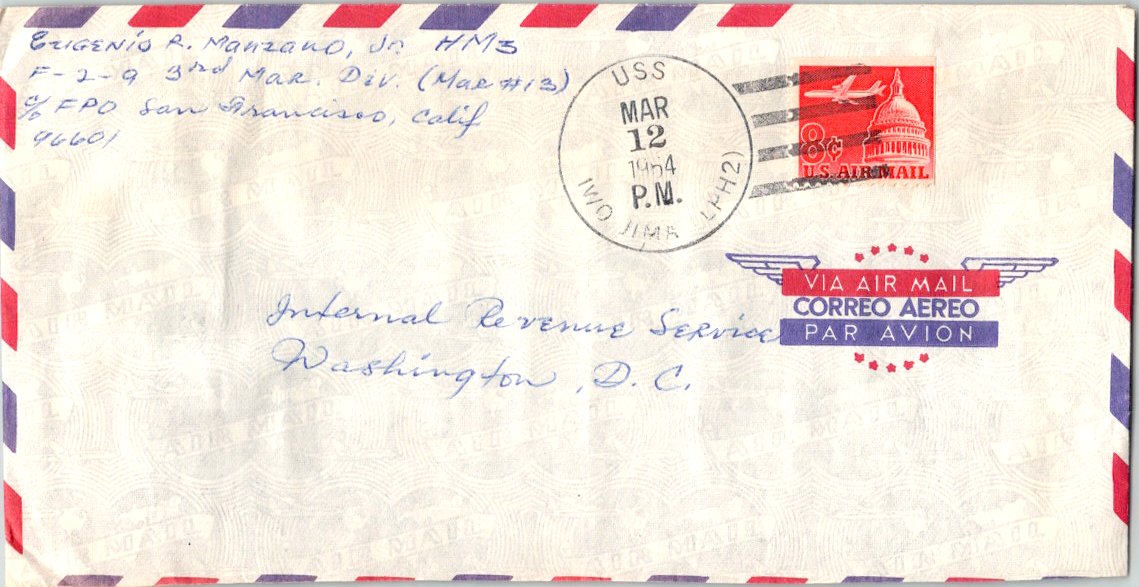 Eugenio R. Manzano, Jr. HM3
F-2-9 3rd Mar. Div. (Mar #13)
c/o FPO San Francisco, Calif
96601
USS
MAR
12
1964
P.M.
IWO JIMA (LPH2)
8¢
U.S. AIR MAIL
VIA AIR MAIL
CORREO AEREO
PAR AVION
Internal Revenue Service
Washington, D.C.